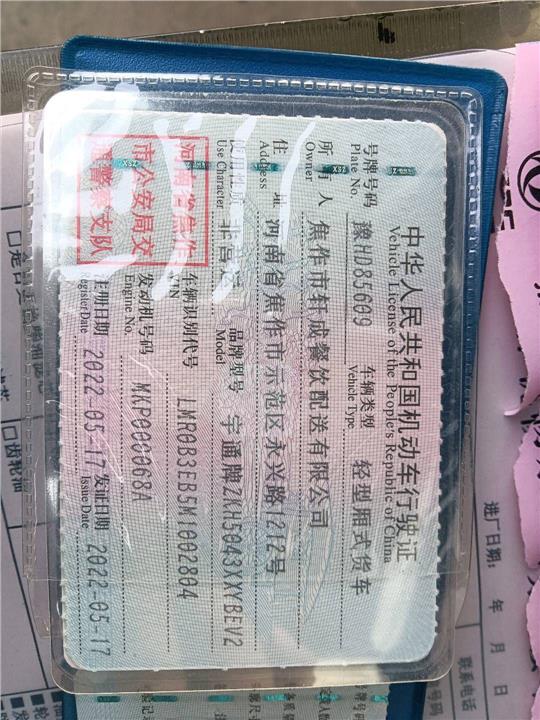 中华人民共和国机动车行驶证
Vehicle License of the People's Republic of China
号牌号码 豫HD85609 车辆类型 轻型厢式货车
Plate No. Vehicle Type
所有人 焦作市轩成餐饮配送有限公司
Owner
住址 河南省焦作市示范区永兴路1212号
Address
使用性质 非营运 品牌型号 宇通牌ZKJ5043XXYBEV2
Use Character Model
河南省焦作
市公安局交
警察支队
车辆识别代号 LMR0B3EB5M1002804
VIN
发动机号码 MKP000068A
Engine No.
注册日期 2022-05-17 发证日期 2022-05-17
Register Date Issue Date
进厂日期: 年 月
联系电话
齿轮油